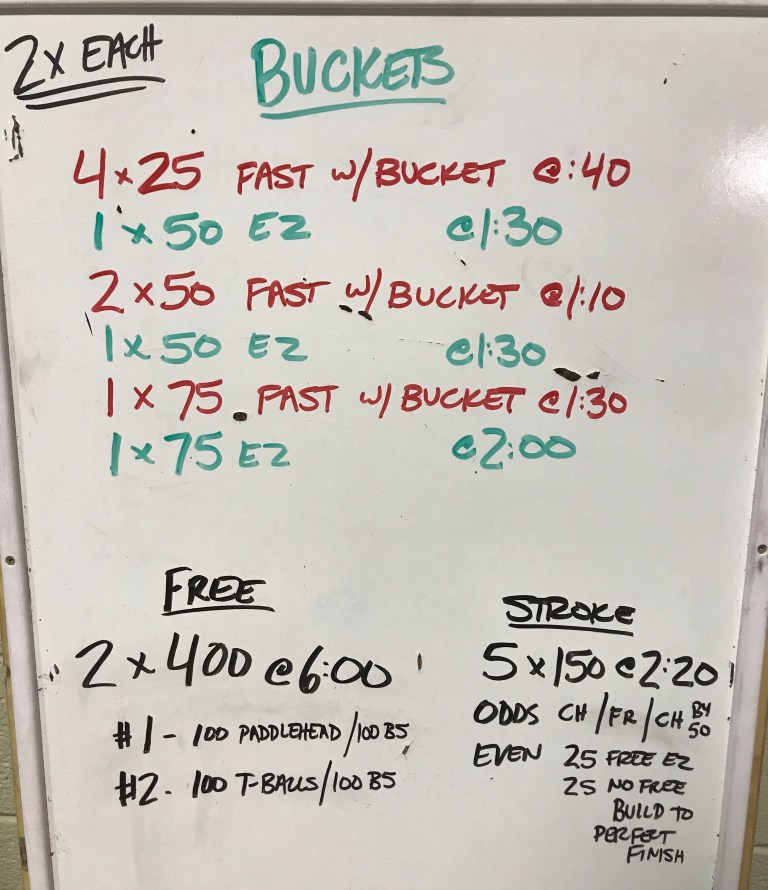 2x EACH
BUCKETS
4x25 FAST W/BUCKET @:40
1x50 EZ @1:30
2x50 FAST W/BUCKET @1:10
1x50 EZ @1:30
1x75 FAST W/BUCKET @1:30
1x75 EZ @2:00
FREE
2x400 @6:00
#1- 100 PADDLEHEAD/100 B5
#2- 100 T-BALLS/100 B5
STROKE
5x150@2:20
ODDS CH/FR/CH BY 50
EVEN 25 FREE EZ
25 NO FREE
BUILD TO
PERFECT
FINISH